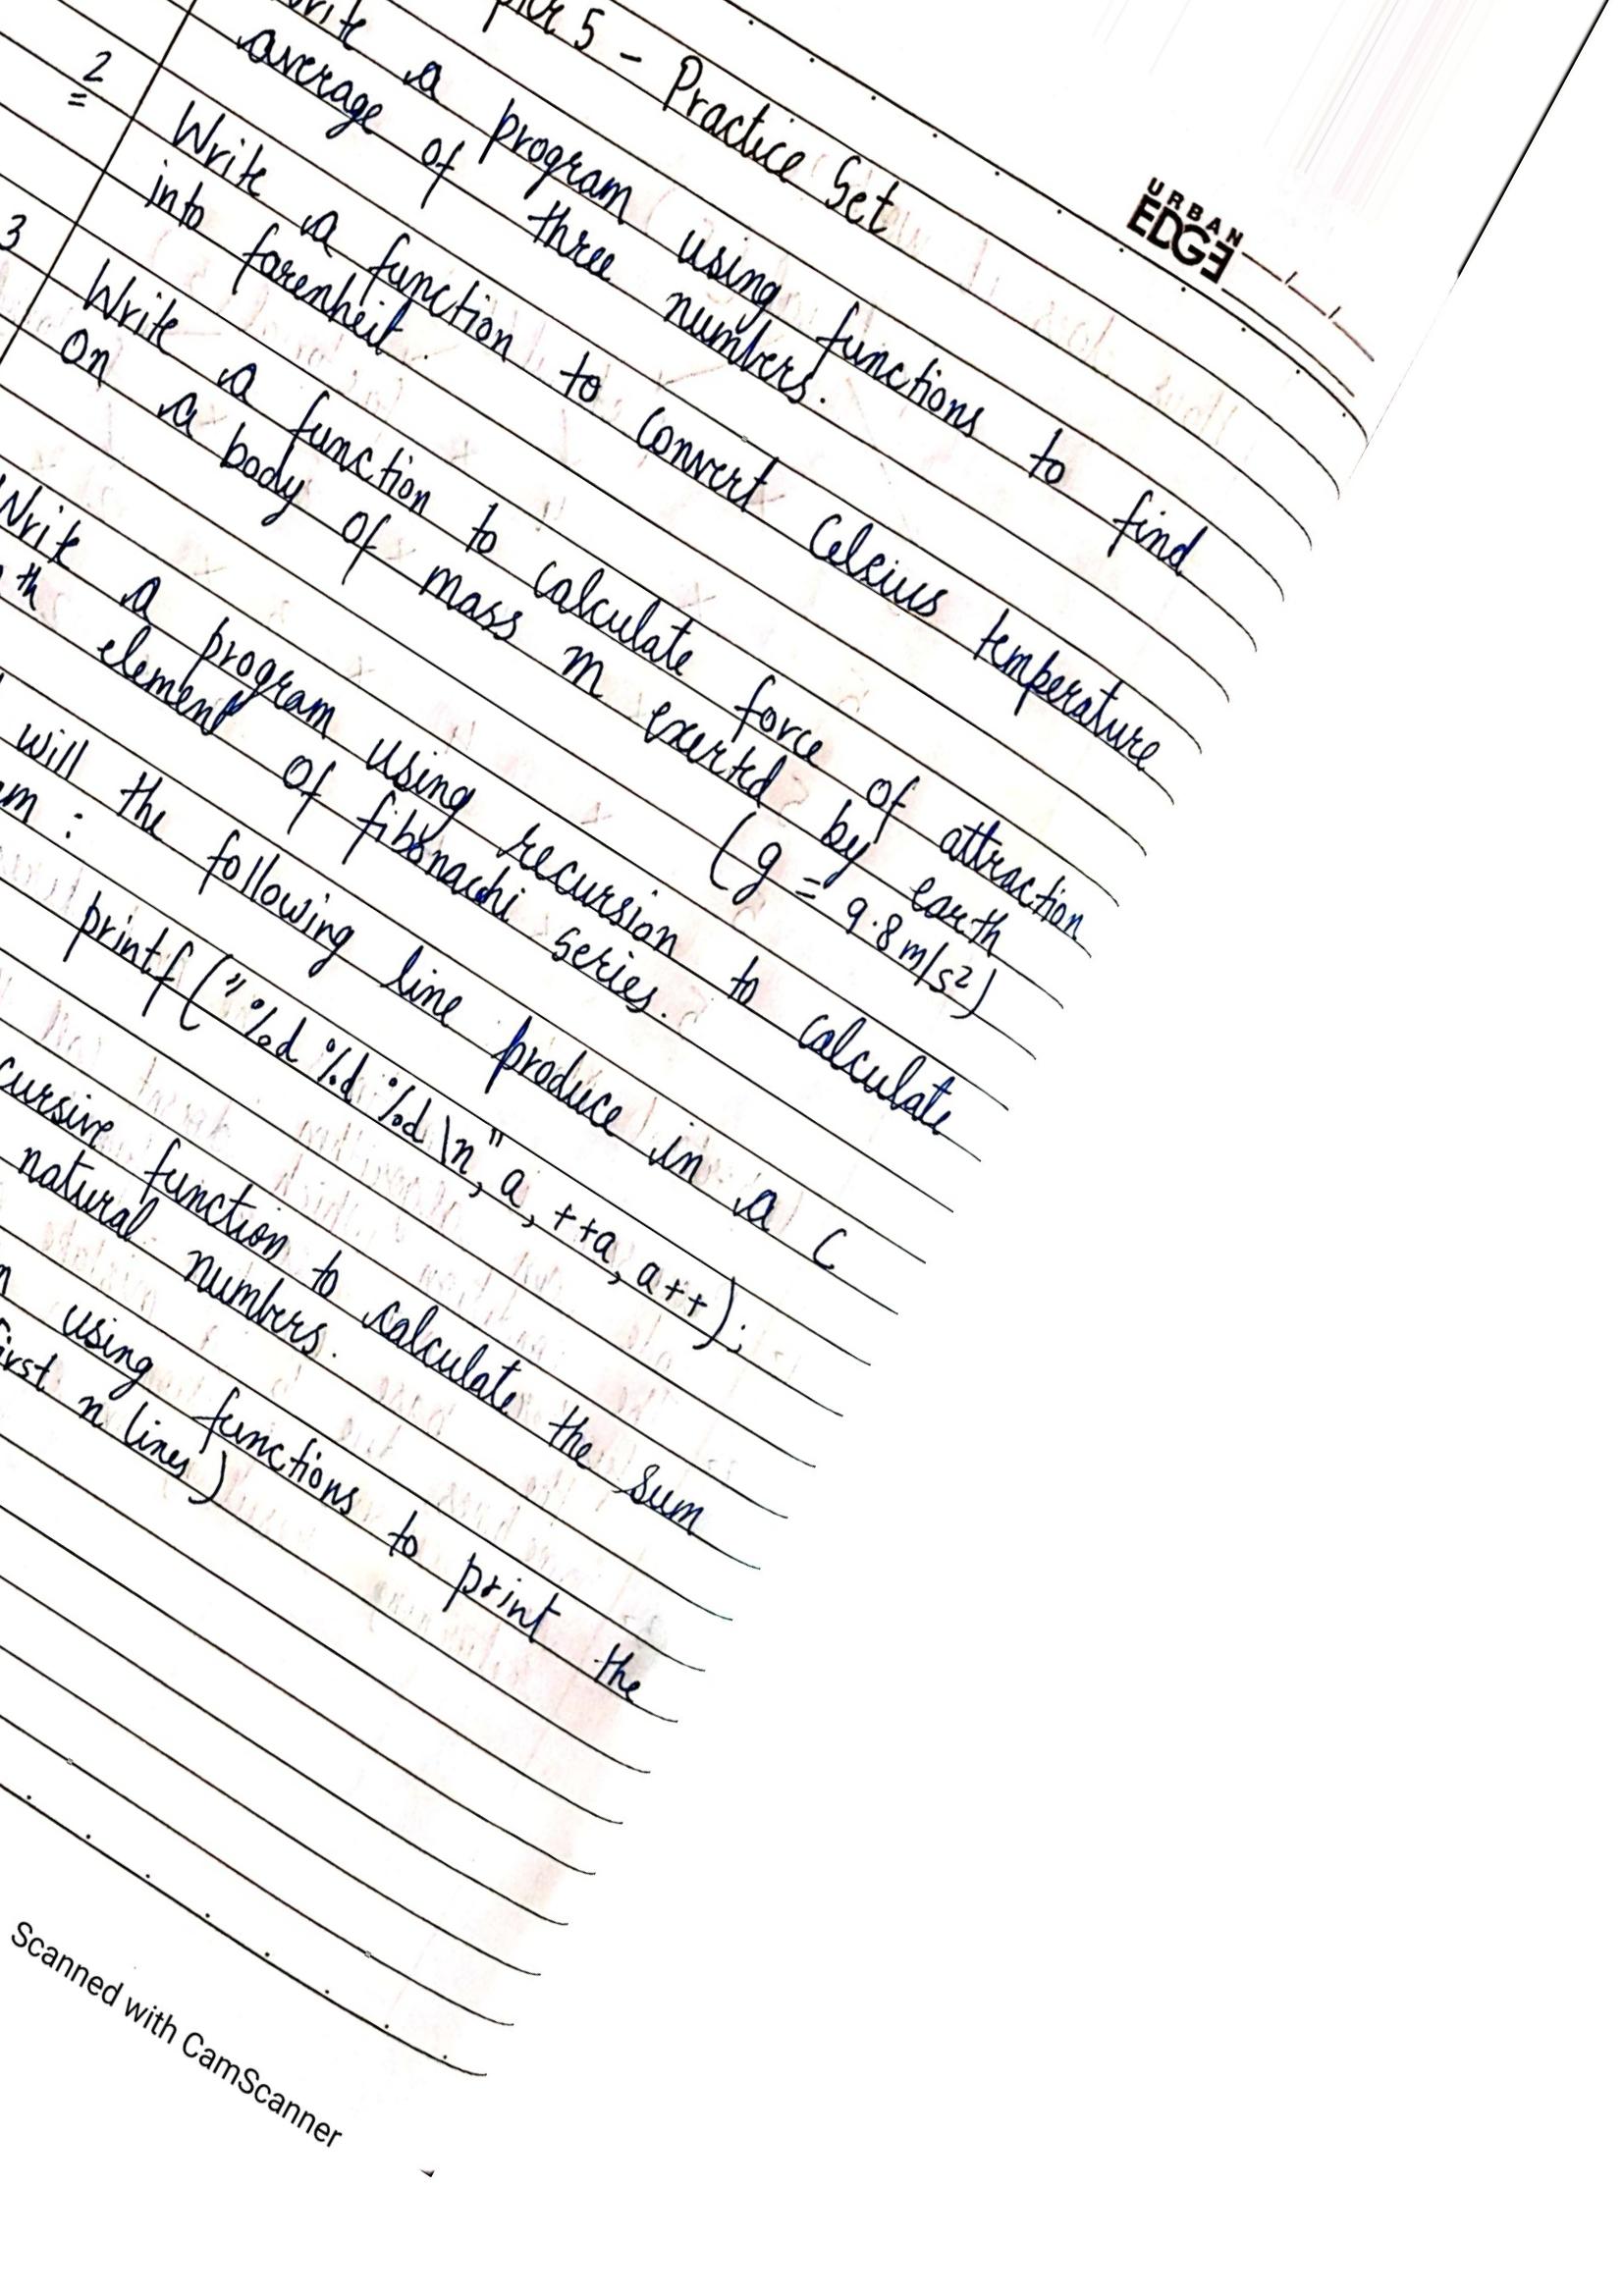 5 - Practice Set
URBAN
EDGE
a program using functions to find
average of three numbers.
2 Write a function to convert Celsius temperature
into farenheit.
3 Write a function to calculate force of attraction
on a body of mass m exerted by earth
(g = 9.8 m/s²)
Write a program using recursion to calculate
th element of fibonachi series.
will the following line produce in a C
:
printf ("%d %d %d \n", a, ++a, a++);
function to calculate the sum
natural numbers.
using functions to print the
n lines)
Scanned with CamScanner